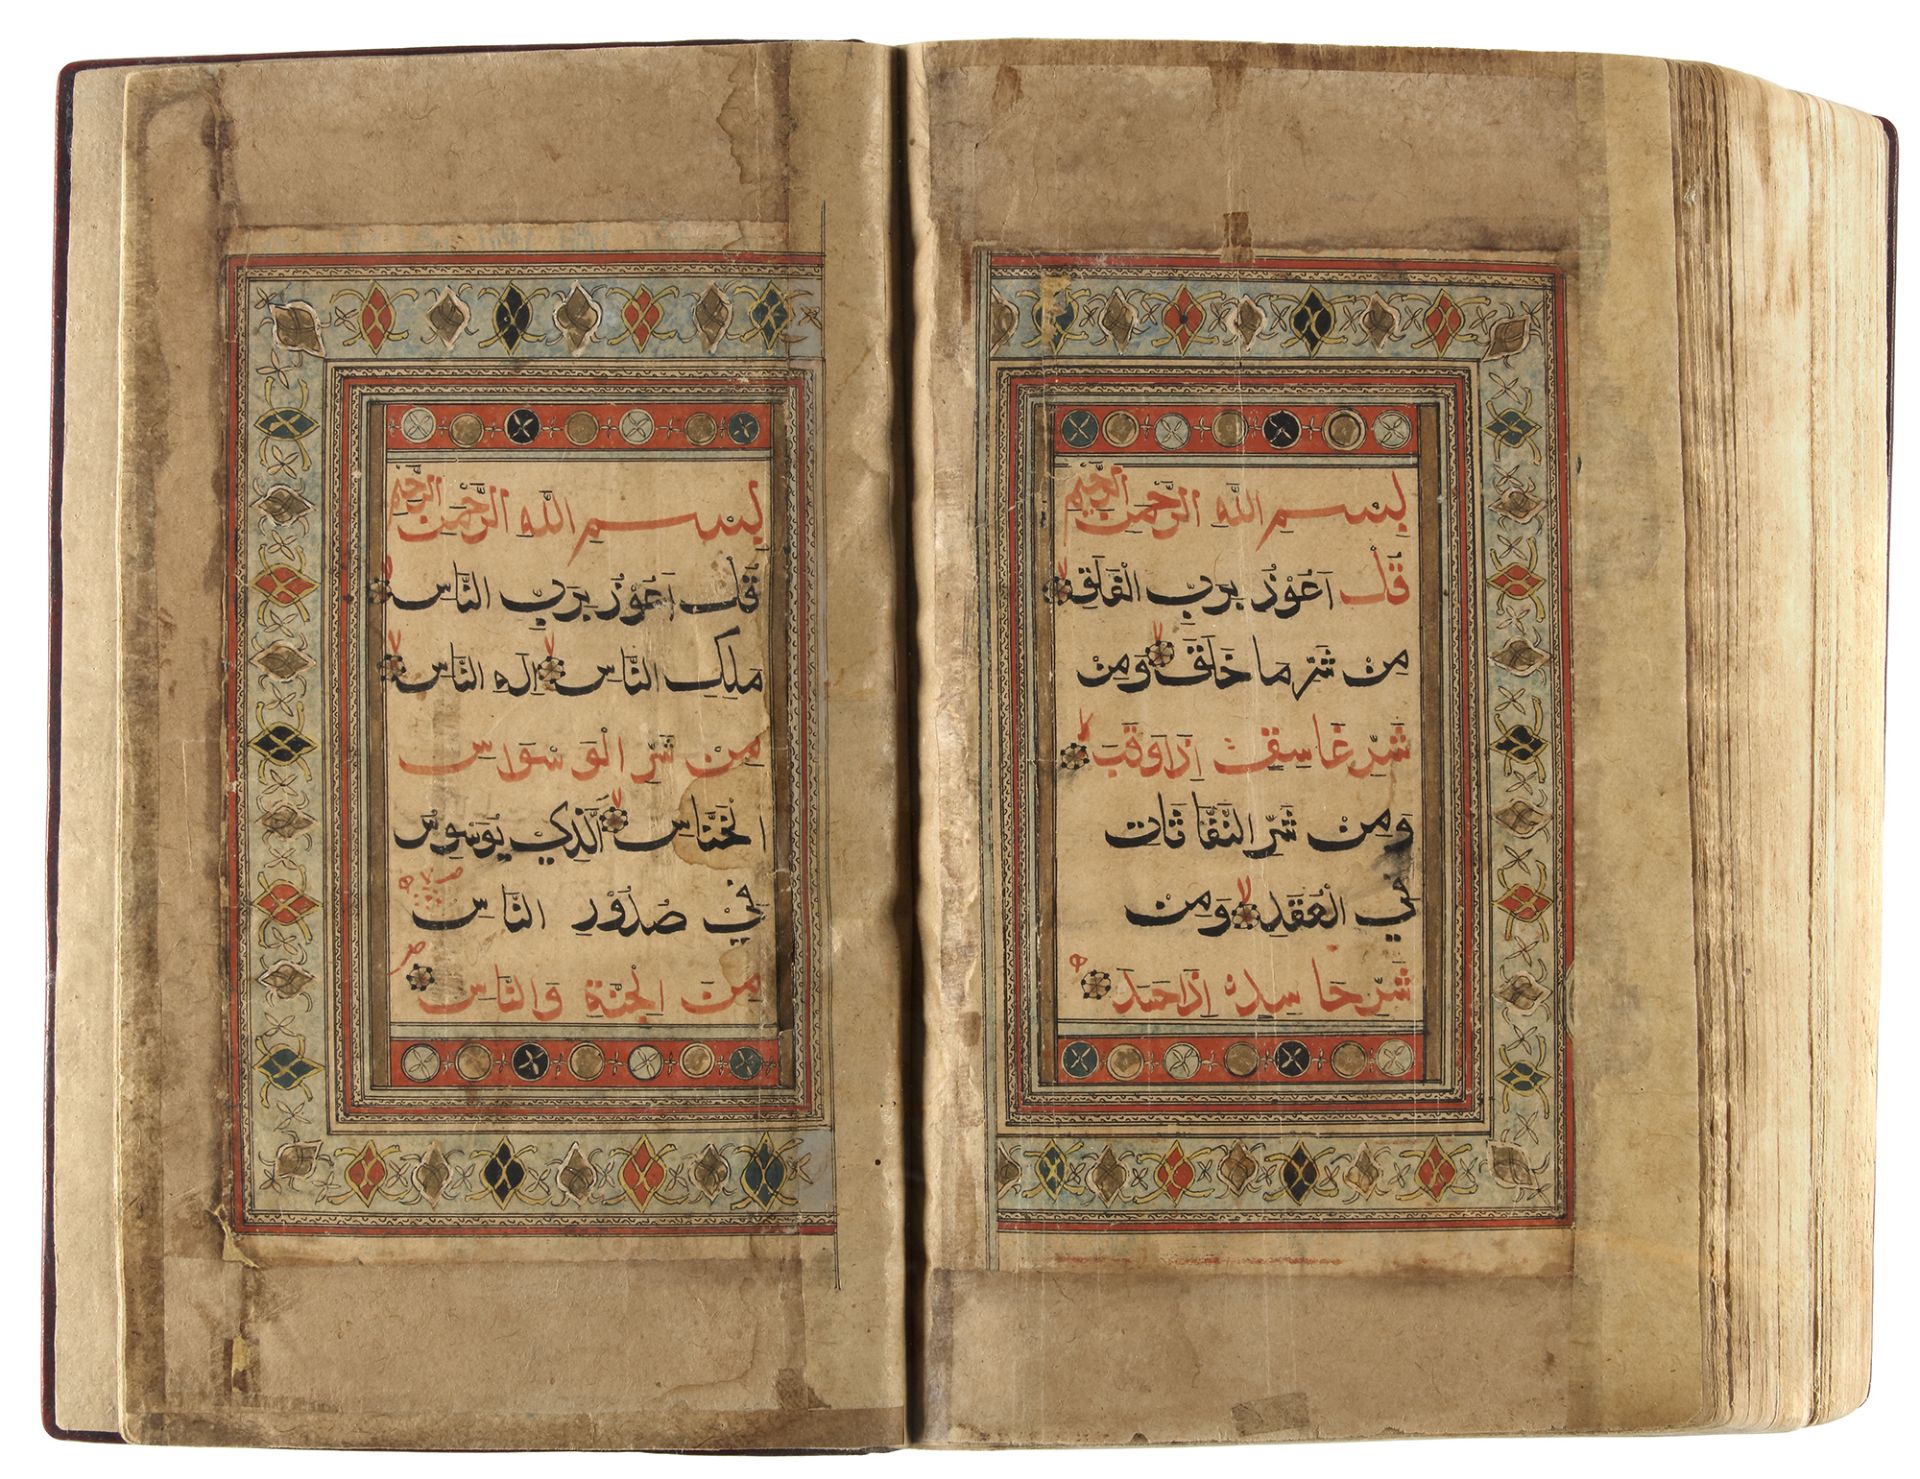 بِسْمِ اللَّهِ الرَّحْمَنِ الرَّحِيْمِ
قُلْ اَعُوْذُ بِرَبِّ الْفَلَقِ
مِنْ شَرِّ مَا خَلَقَ وَمِنْ
شَرِّ غَاسِقٍ اِذَا وَقَبَ
وَمِنْ شَرِّ النَّفَّاثَاتِ
فِي الْعُقَدِ وَمِنْ
شَرِّ حَاسِدٍ اِذَا حَسَدَ
بِسْمِ اللَّهِ الرَّحْمَنِ الرَّحِيْمِ
قُلْ اَعُوْذُ بِرَبِّ النَّاسِ
مَلِكِ النَّاسِ اِلَهِ النَّاسِ
مِنْ شَرِّ الْوَسْوَاسِ
الْخَنَّاسِ الَّذِيْ يُوَسْوِسُ
فِيْ صُدُوْرِ النَّاسِ
مِنَ الْجِنَّةِ وَالنَّاسِ